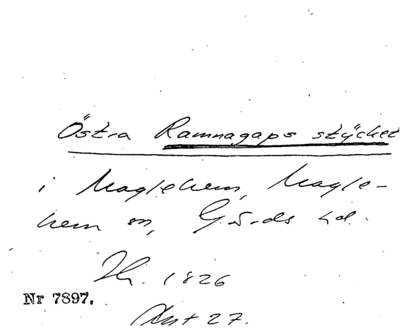 Östra Ramnagaps stycket
i Maglehem, Magle-
hem sn, Gärds hd.
1826
Nr 7897.
Akt 27.